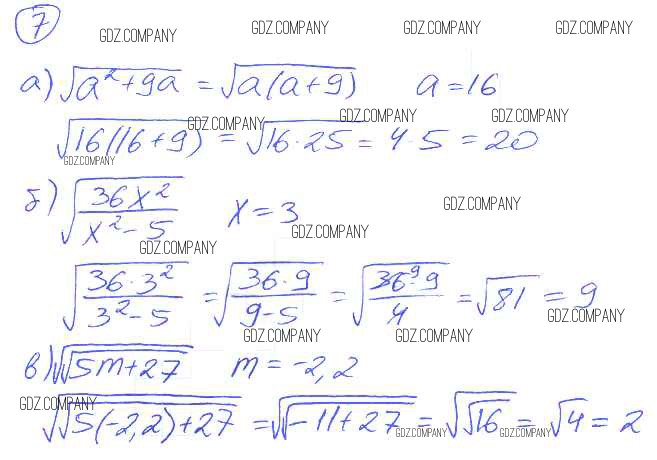 7
GDZ.COMPANY GDZ.COMPANY GDZ.COMPANY GDZ.COMPANY
а) √(a² + 9a) = √(a(a + 9)) a = 16
GDZ.COMPANY GDZ.COMPANY GDZ.COMPANY
√(16(16 + 9)) = √(16 · 25) = 4 · 5 = 20
GDZ.COMPANY
б) √(36x² / (x² - 5)) x = 3
GDZ.COMPANY
GDZ.COMPANY GDZ.COMPANY
√(36 · 3² / (3² - 5)) = √(36 · 9 / (9 - 5)) = √(36⁹ · 9 / 4) = √81 = 9
GDZ.COMPANY
GDZ.COMPANY GDZ.COMPANY
в) √√(5m + 27) m = -2,2
GDZ.COMPANY
√√(5(-2,2) + 27) = √√(-11 + 27) = √√16 = √4 = 2
GDZ.COMPANY GDZ.COMPANY